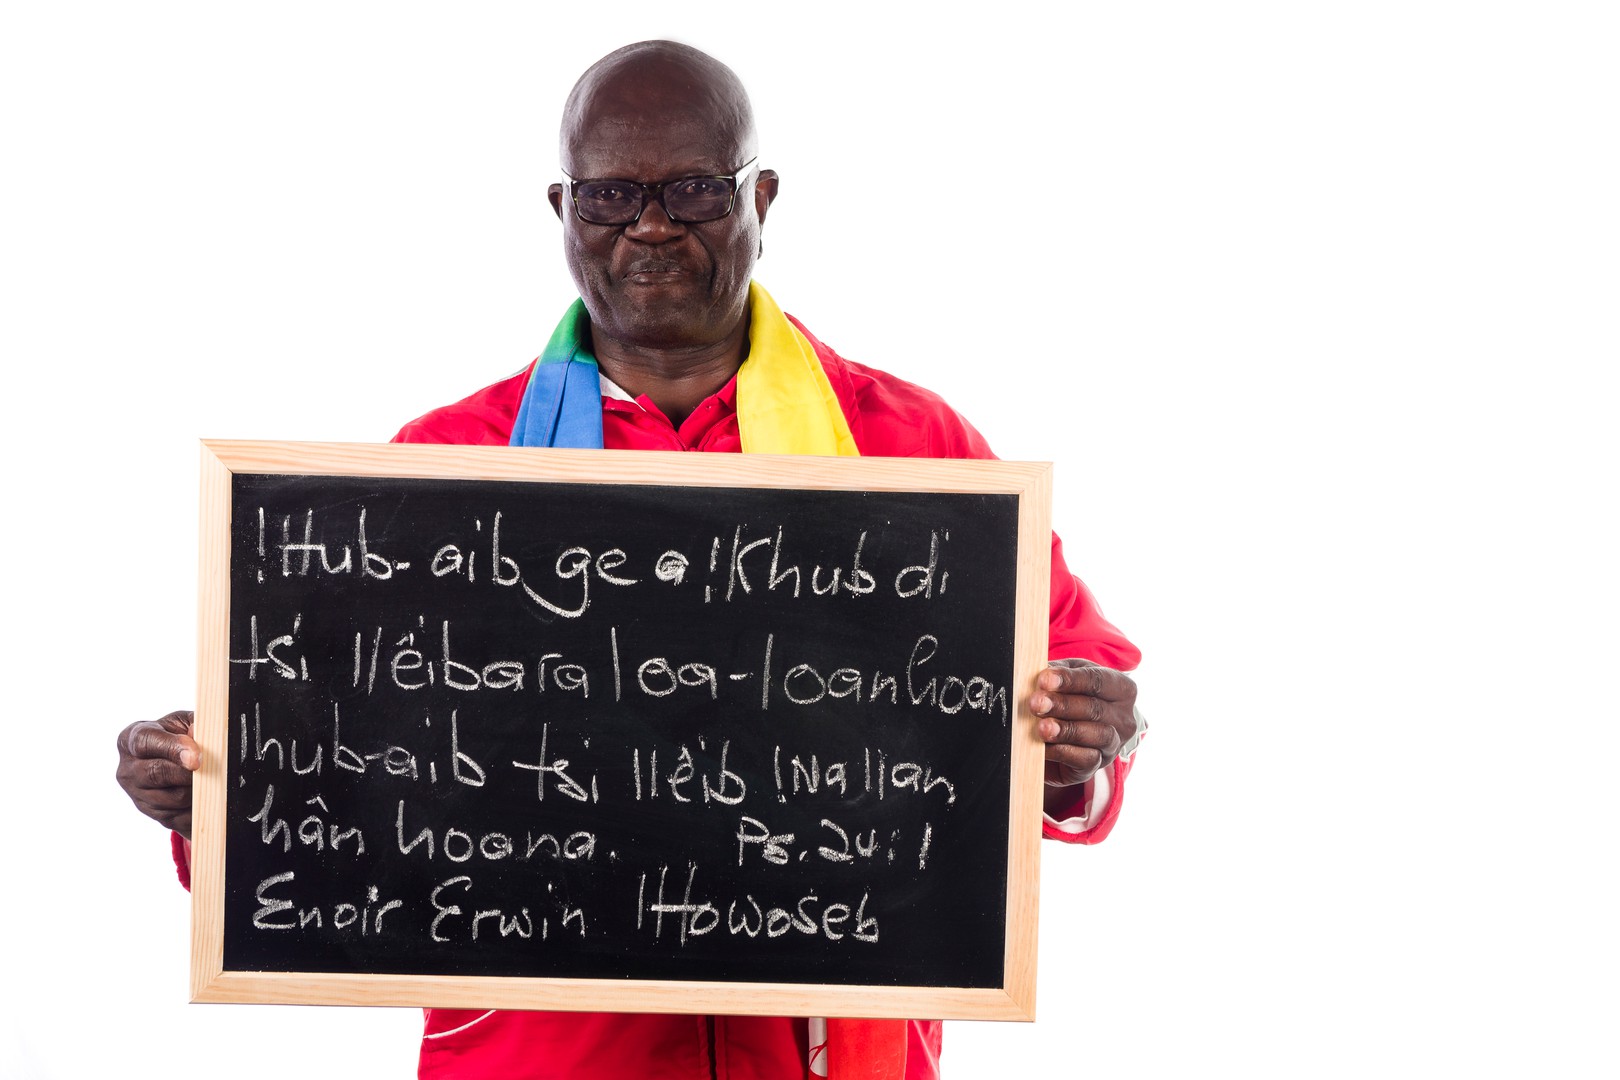 !Hub-aib ge a !Khub di
tsi ||êibara |oa-|oanhoan
!hub-aib tsi ||êib !Na ||an
hân hoona. Ps. 24:1
Enoir Erwin |Howoseb